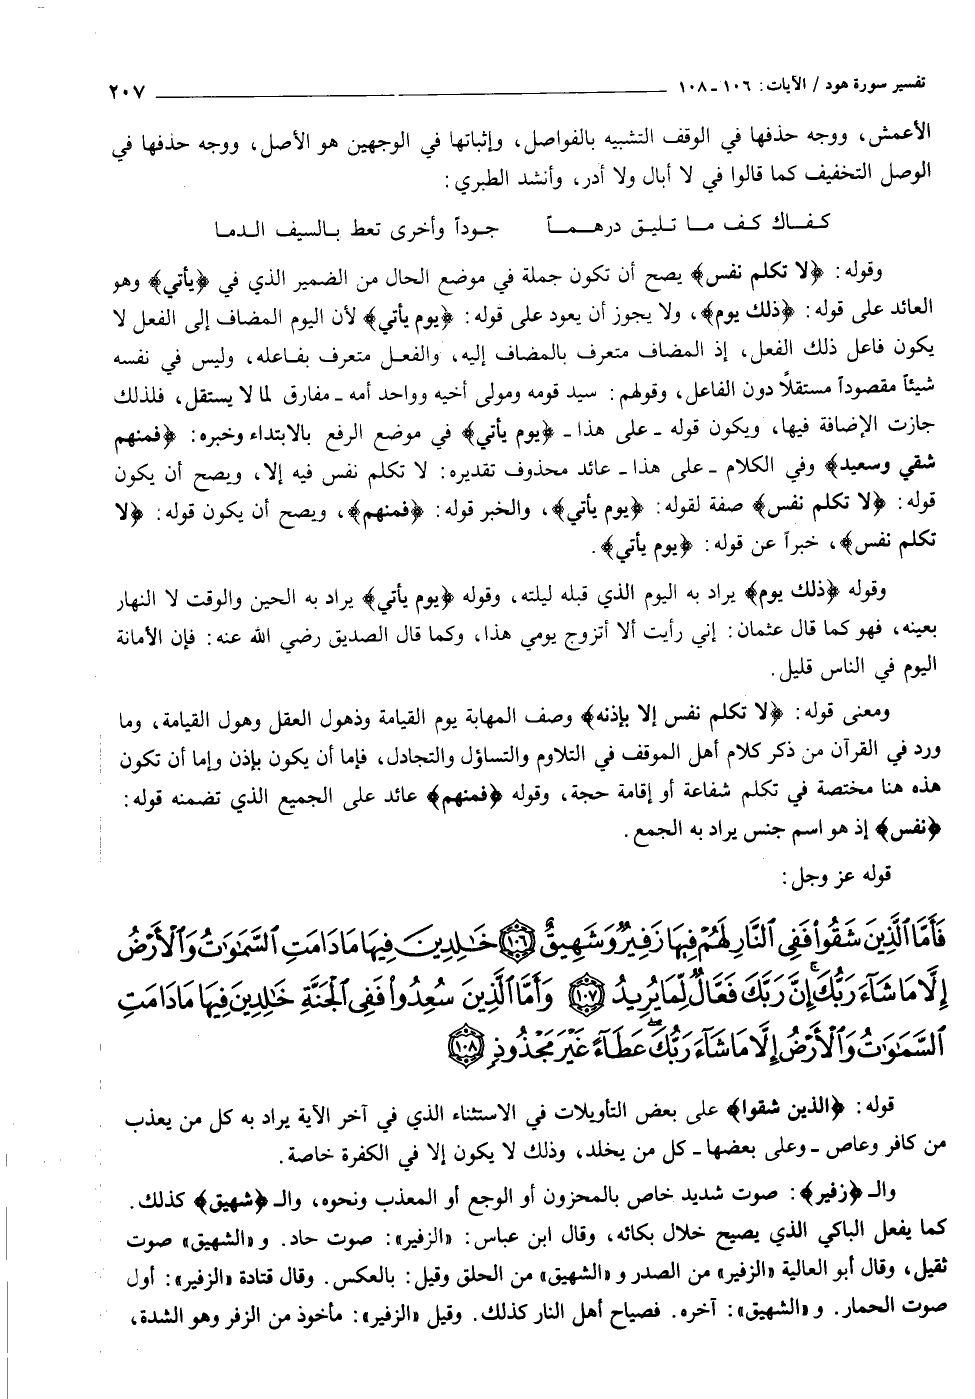 تفسير سورة هود / الآيات: ١٠٦ ـ ١٠٨ ٢٠٧
الأعمش، ووجه حذفها في الوقف التشبيه بالفواصل، وإثباتها في الوجهين هو الأصل، ووجه حذفها في
الوصل التخفيف كما قالوا في لا أبال ولا أدر، وأنشد الطبري:
كفاك كف ما تليق درهمـاً جوداً وأخرى تعط بالسيف الدما
وقوله: ﴿لا تكلم نفس﴾ يصح أن تكون جملة في موضع الحال من الضمير الذي في ﴿يأتي﴾ وهو
العائد على قوله: ﴿ذلك يوم﴾، ولا يجوز أن يعود على قوله: ﴿يوم يأتي﴾ لأن اليوم المضاف إلى الفعل لا
يكون فاعل ذلك الفعل، إذ المضاف متعرف بالمضاف إليه، والفعل متعرف بفاعله، وليس في نفسه
شيئاً مقصوداً مستقلاً دون الفاعل، وقولهم: سيد قومه ومولى أخيه وواحد أمه ـ مفارق لما لا يستقل، فلذلك
جازت الإضافة فيها، ويكون قوله ـ على هذا ـ ﴿يوم يأتي﴾ في موضع الرفع بالابتداء وخبره: ﴿فمنهم
شقي وسعيد﴾ وفي الكلام ـ على هذا ـ عائد محذوف تقديره: لا تكلم نفس فيه إلا، ويصح أن يكون
قوله: ﴿لا تكلم نفس﴾ صفة لقوله: ﴿يوم يأتي﴾، والخبر قوله: ﴿فمنهم﴾، ويصح أن يكون قوله: ﴿لا
تكلم نفس﴾، خبراً عن قوله: ﴿يوم يأتي﴾.
وقوله ﴿ذلك يوم﴾ يراد به اليوم الذي قبله ليلته، وقوله ﴿يوم يأتي﴾ يراد به الحين والوقت لا النهار
بعينه، فهو كما قال عثمان: إني رأيت ألا أتزوج يومي هذا، وكما قال الصديق رضي الله عنه: فإن الأمانة
اليوم في الناس قليل.
ومعنى قوله: ﴿لا تكلم نفس إلا بإذنه﴾ وصف المهابة يوم القيامة وذهول العقل وهول القيامة، وما
ورد في القرآن من ذكر كلام أهل الموقف في التلاوم والتساؤل والتجادل، فإما أن يكون بإذن وإما أن تكون
هذه هنا مختصة في تكلم شفاعة أو إقامة حجة، وقوله ﴿فمنهم﴾ عائد على الجميع الذي تضمنه قوله:
﴿نفس﴾ إذ هو اسم جنس يراد به الجمع.
قوله عز وجل:
فَأَمَّا ٱلَّذِينَ شَقُواْ فَفِى ٱلنَّارِ لَهُمْ فِيهَا زَفِيرٌ وَشَهِيقٌ ﴿١٠٦﴾ خَـٰلِدِينَ فِيهَا مَا دَامَتِ ٱلسَّمَـٰوَٰتُ وَٱلْأَرْضُ
إِلَّا مَا شَآءَ رَبُّكَ ۚ إِنَّ رَبَّكَ فَعَّالٌ لِّمَا يُرِيدُ ﴿١٠٧﴾ وَأَمَّا ٱلَّذِينَ سُعِدُواْ فَفِى ٱلْجَنَّةِ خَـٰلِدِينَ فِيهَا مَا دَامَتِ
ٱلسَّمَـٰوَٰتُ وَٱلْأَرْضُ إِلَّا مَا شَآءَ رَبُّكَ ۖ عَطَآءً غَيْرَ مَجْذُوذٍ ﴿١٠٨﴾
قوله: ﴿الذين شقوا﴾ على بعض التأويلات في الاستثناء الذي في آخر الآية يراد به كل من يعذب
من كافر وعاص ـ وعلى بعضها ـ كل من يخلد، وذلك لا يكون إلا في الكفرة خاصة.
والـ ﴿زفير﴾: صوت شديد خاص بالمحزون أو الوجع أو المعذب ونحوه، والـ ﴿شهيق﴾ كذلك.
كما يفعل الباكي الذي يصيح خلال بكائه، وقال ابن عباس: «الزفير»: صوت حاد. و «الشهيق» صوت
ثقيل، وقال أبو العالية «الزفير» من الصدر و «الشهيق» من الحلق وقيل: بالعكس. وقال قتادة «الزفير»: أول
صوت الحمار. و «الشهيق»: آخره. فصياح أهل النار كذلك. وقيل «الزفير»: مأخوذ من الزفر وهو الشدة،